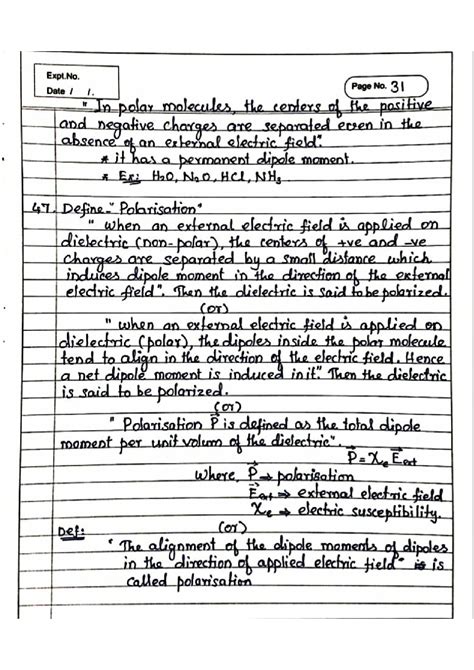 Expt.No.
Date / /.
Page No. 31
" In polar molecules, the centers of the positive
and negative charges are separated even in the
absence of an external electric field".
* it has a permanent dipole moment.
* Ex: H₂O, N₂O, HCl, NH₃
47. Define "Polarisation"
" When an external electric field is applied on
dielectric (non-polar), the centers of +ve and -ve
charges are separated by a small distance which
induces dipole moment in the direction of the external
electric field". Then the dielectric is said to be polarized.
(or)
" When an external electric field is applied on
dielectric (polar), the dipoles inside the polar molecule
tend to align in the direction of the electric field. Hence
a net dipole moment is induced in it". Then the dielectric
is said to be polarized.
(or)
" Polarisation P⃗ is defined as the total dipole
moment per unit volum of the dielectric".
P⃗ = χₑ E⃗ext
Where, P⃗ ⇒ polarisation
E⃗ext ⇒ external electric field
χₑ ⇒ electric susceptibility.
(or)
Def:
" The alignment of the dipole moments of dipoles
in the direction of applied electric field" is is
called polarisation